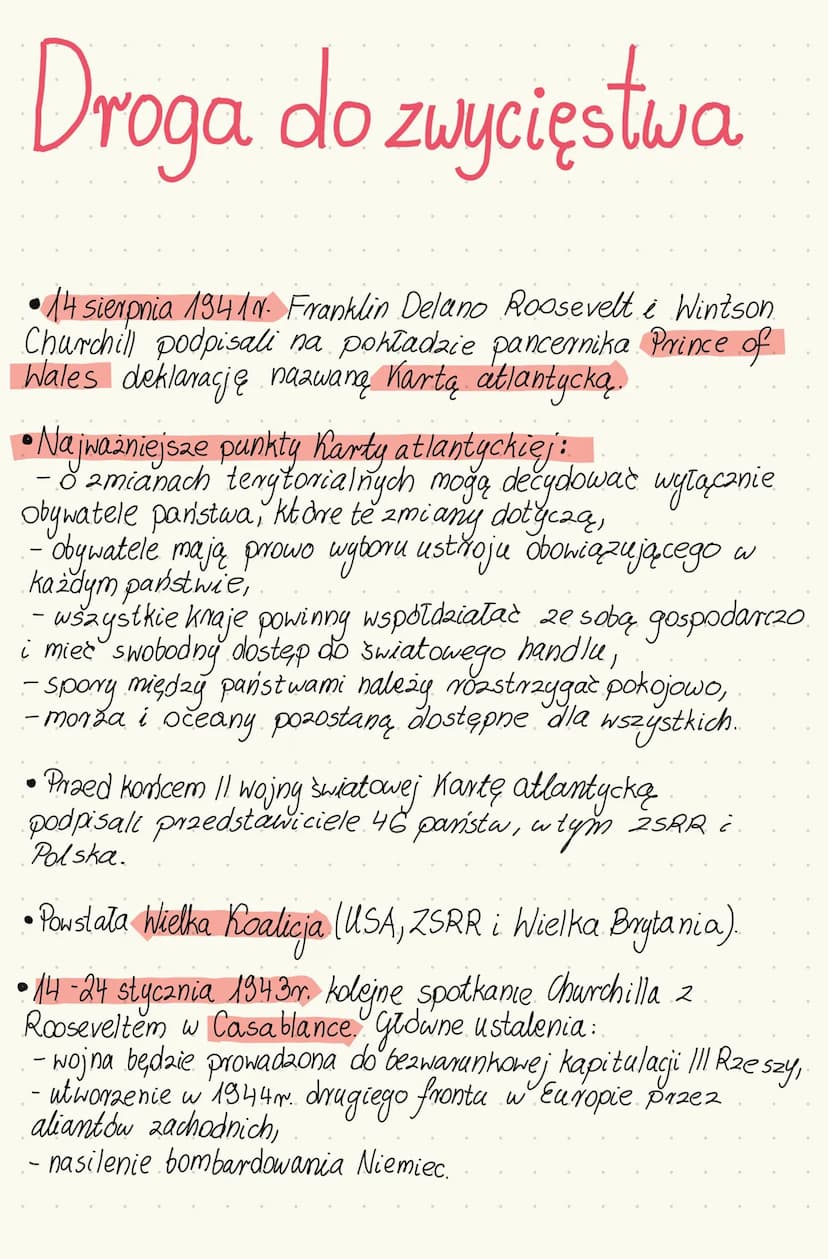 Droga do zwycięstwa
• 14 sierpnia 1941r. Franklin Delano Roosevelt i Wintson
Churchill podpisali na pokładzie pancernika Prince of
Wales deklarację nazwaną Kartą atlantycką.
• Najważniejsze punkty Karty atlantyckiej:
- o zmianach terytorialnych mogą decydować wyłącznie
obywatele państwa, które te zmiany dotyczą,
- obywatele mają prawo wyboru ustroju obowiązującego w
każdym państwie,
- wszystkie kraje powinny współdziałać ze sobą gospodarczo
i mieć swobodny dostęp do światowego handlu,
- spory między państwami należy rozstrzygać pokojowo,
- morza i oceany pozostaną dostępne dla wszystkich.
• Przed końcem II wojny światowej Kartę atlantycką
podpisali przedstawiciele 46 państw, w tym ZSRR i
Polska.
• Powstała Wielka Koalicja (USA, ZSRR i Wielka Brytania).
• 14-24 stycznia 1943r. kolejne spotkanie Churchilla z
Rooseveltem w Casablance. Główne ustalenia:
- wojna będzie prowadzona do bezwarunkowej kapitulacji III Rzeszy,
- utworzenie w 1944r. drugiego frontu w Europie przez
aliantów zachodnich,
- nasilenie bombardowania Niemiec.